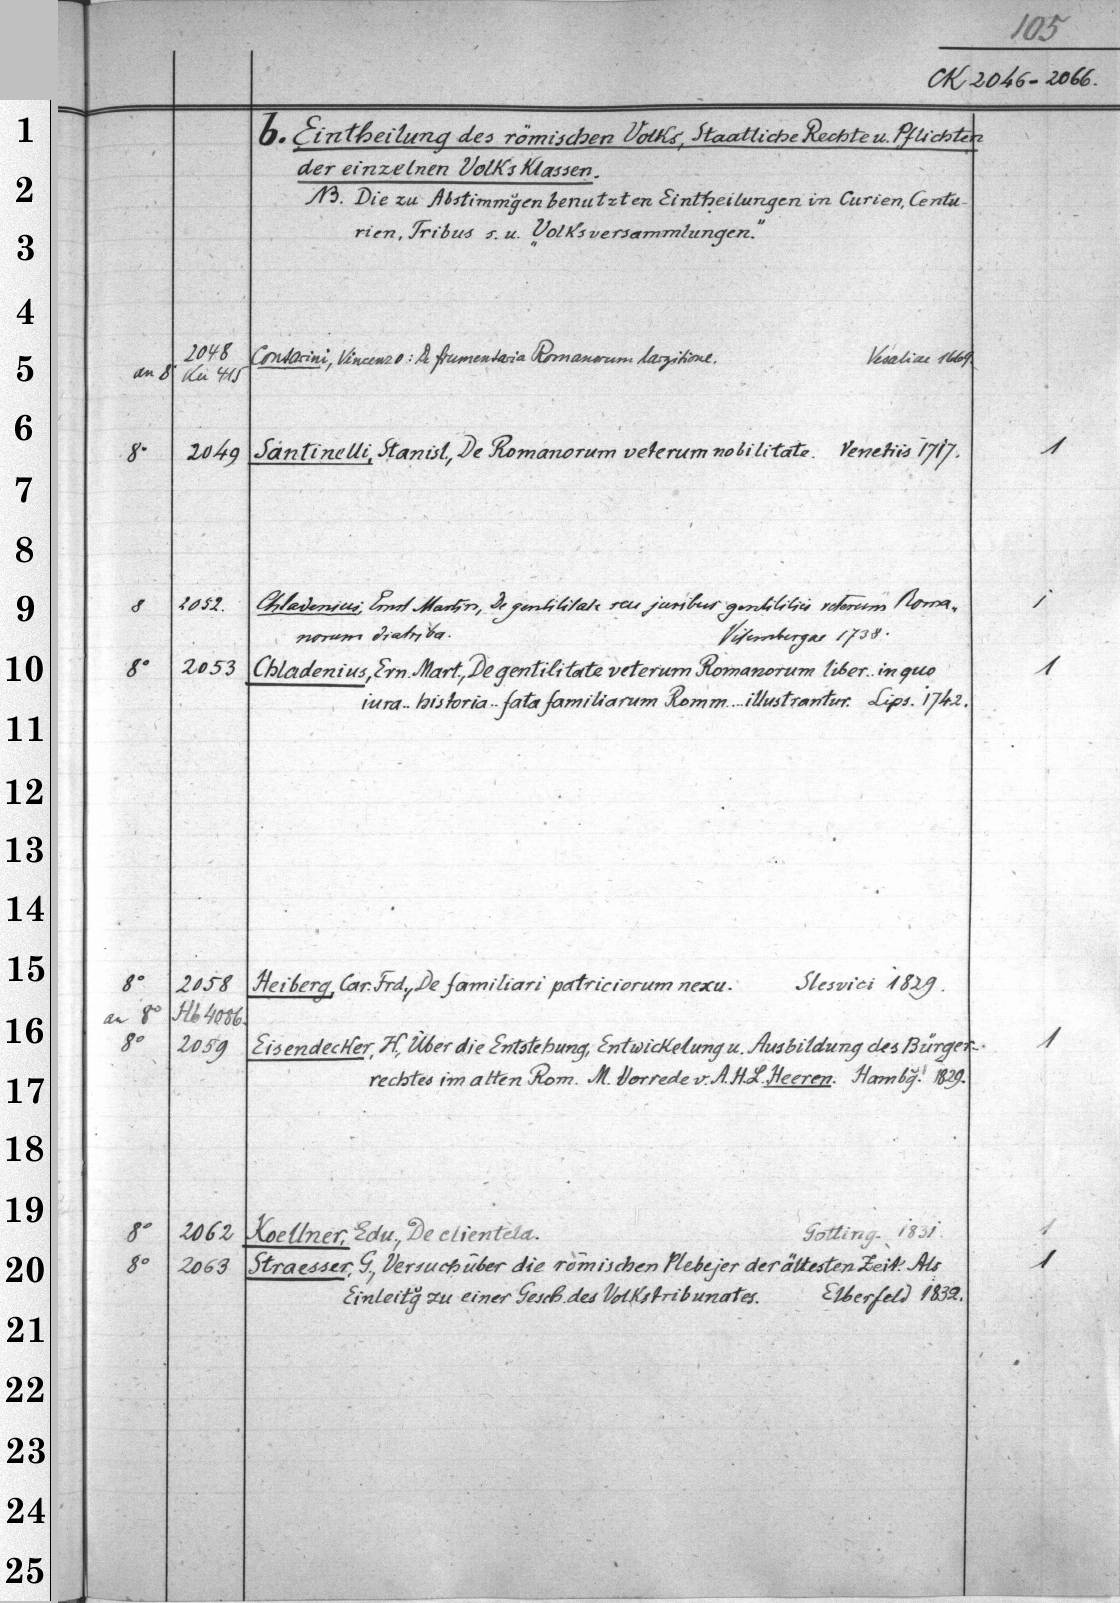 105
CK 2046-2066.
b. Eintheilung des römischen Volks, Staatliche Rechte u. Pflichten
der einzelnen VolksKlassen.
NB. Die zu Abstimmg̃en benutzten Eintheilungen in Curien, Centu-
rien, Tribus s. u. „Volksversammlungen."
2048 Contarini, Vincenzo: De frumentaria Romanorum largitione. Vesaliae 1669.
an 8° 415
8° 2049 Santinelli, Stanisl., De Romanorum veterum nobilitate. Venetiis 1717. 1
8 2052. Chladenius, Ernst Martin, De gentilitate seu juribus gentilitiis veterum Roma- 1
norum diatriba. Vitembergae 1738.
8° 2053 Chladenius, Ern. Mart., De gentilitate veterum Romanorum liber.. in quo 1
iura.. historia.. fata familiarum Romm... illustrantur. Lips. 1742.
8° 2058 Heiberg, Car. Frd., De familiari patriciorum nexu. Slesvici 1829.
an 8° Hb 4086.
8° 2059 Eisendecher, H., Über die Entstehung, Entwickelung u. Ausbildung des Bürger- 1
rechtes im alten Rom. M. Vorrede v. A.H.L. Heeren. Hambg̃. 1829.
8° 2062 Koellner, Edu., De clientela. Gotting. 1831. 1
8° 2063 Straesser, G., Versuch über die römischen Plebejer der ältesten Zeit. Als 1
Einleitg̃ zu einer Gesch. des Volkstribunates. Elberfeld 1832.
1
2
3
4
5
6
7
8
9
10
11
12
13
14
15
16
17
18
19
20
21
22
23
24
25